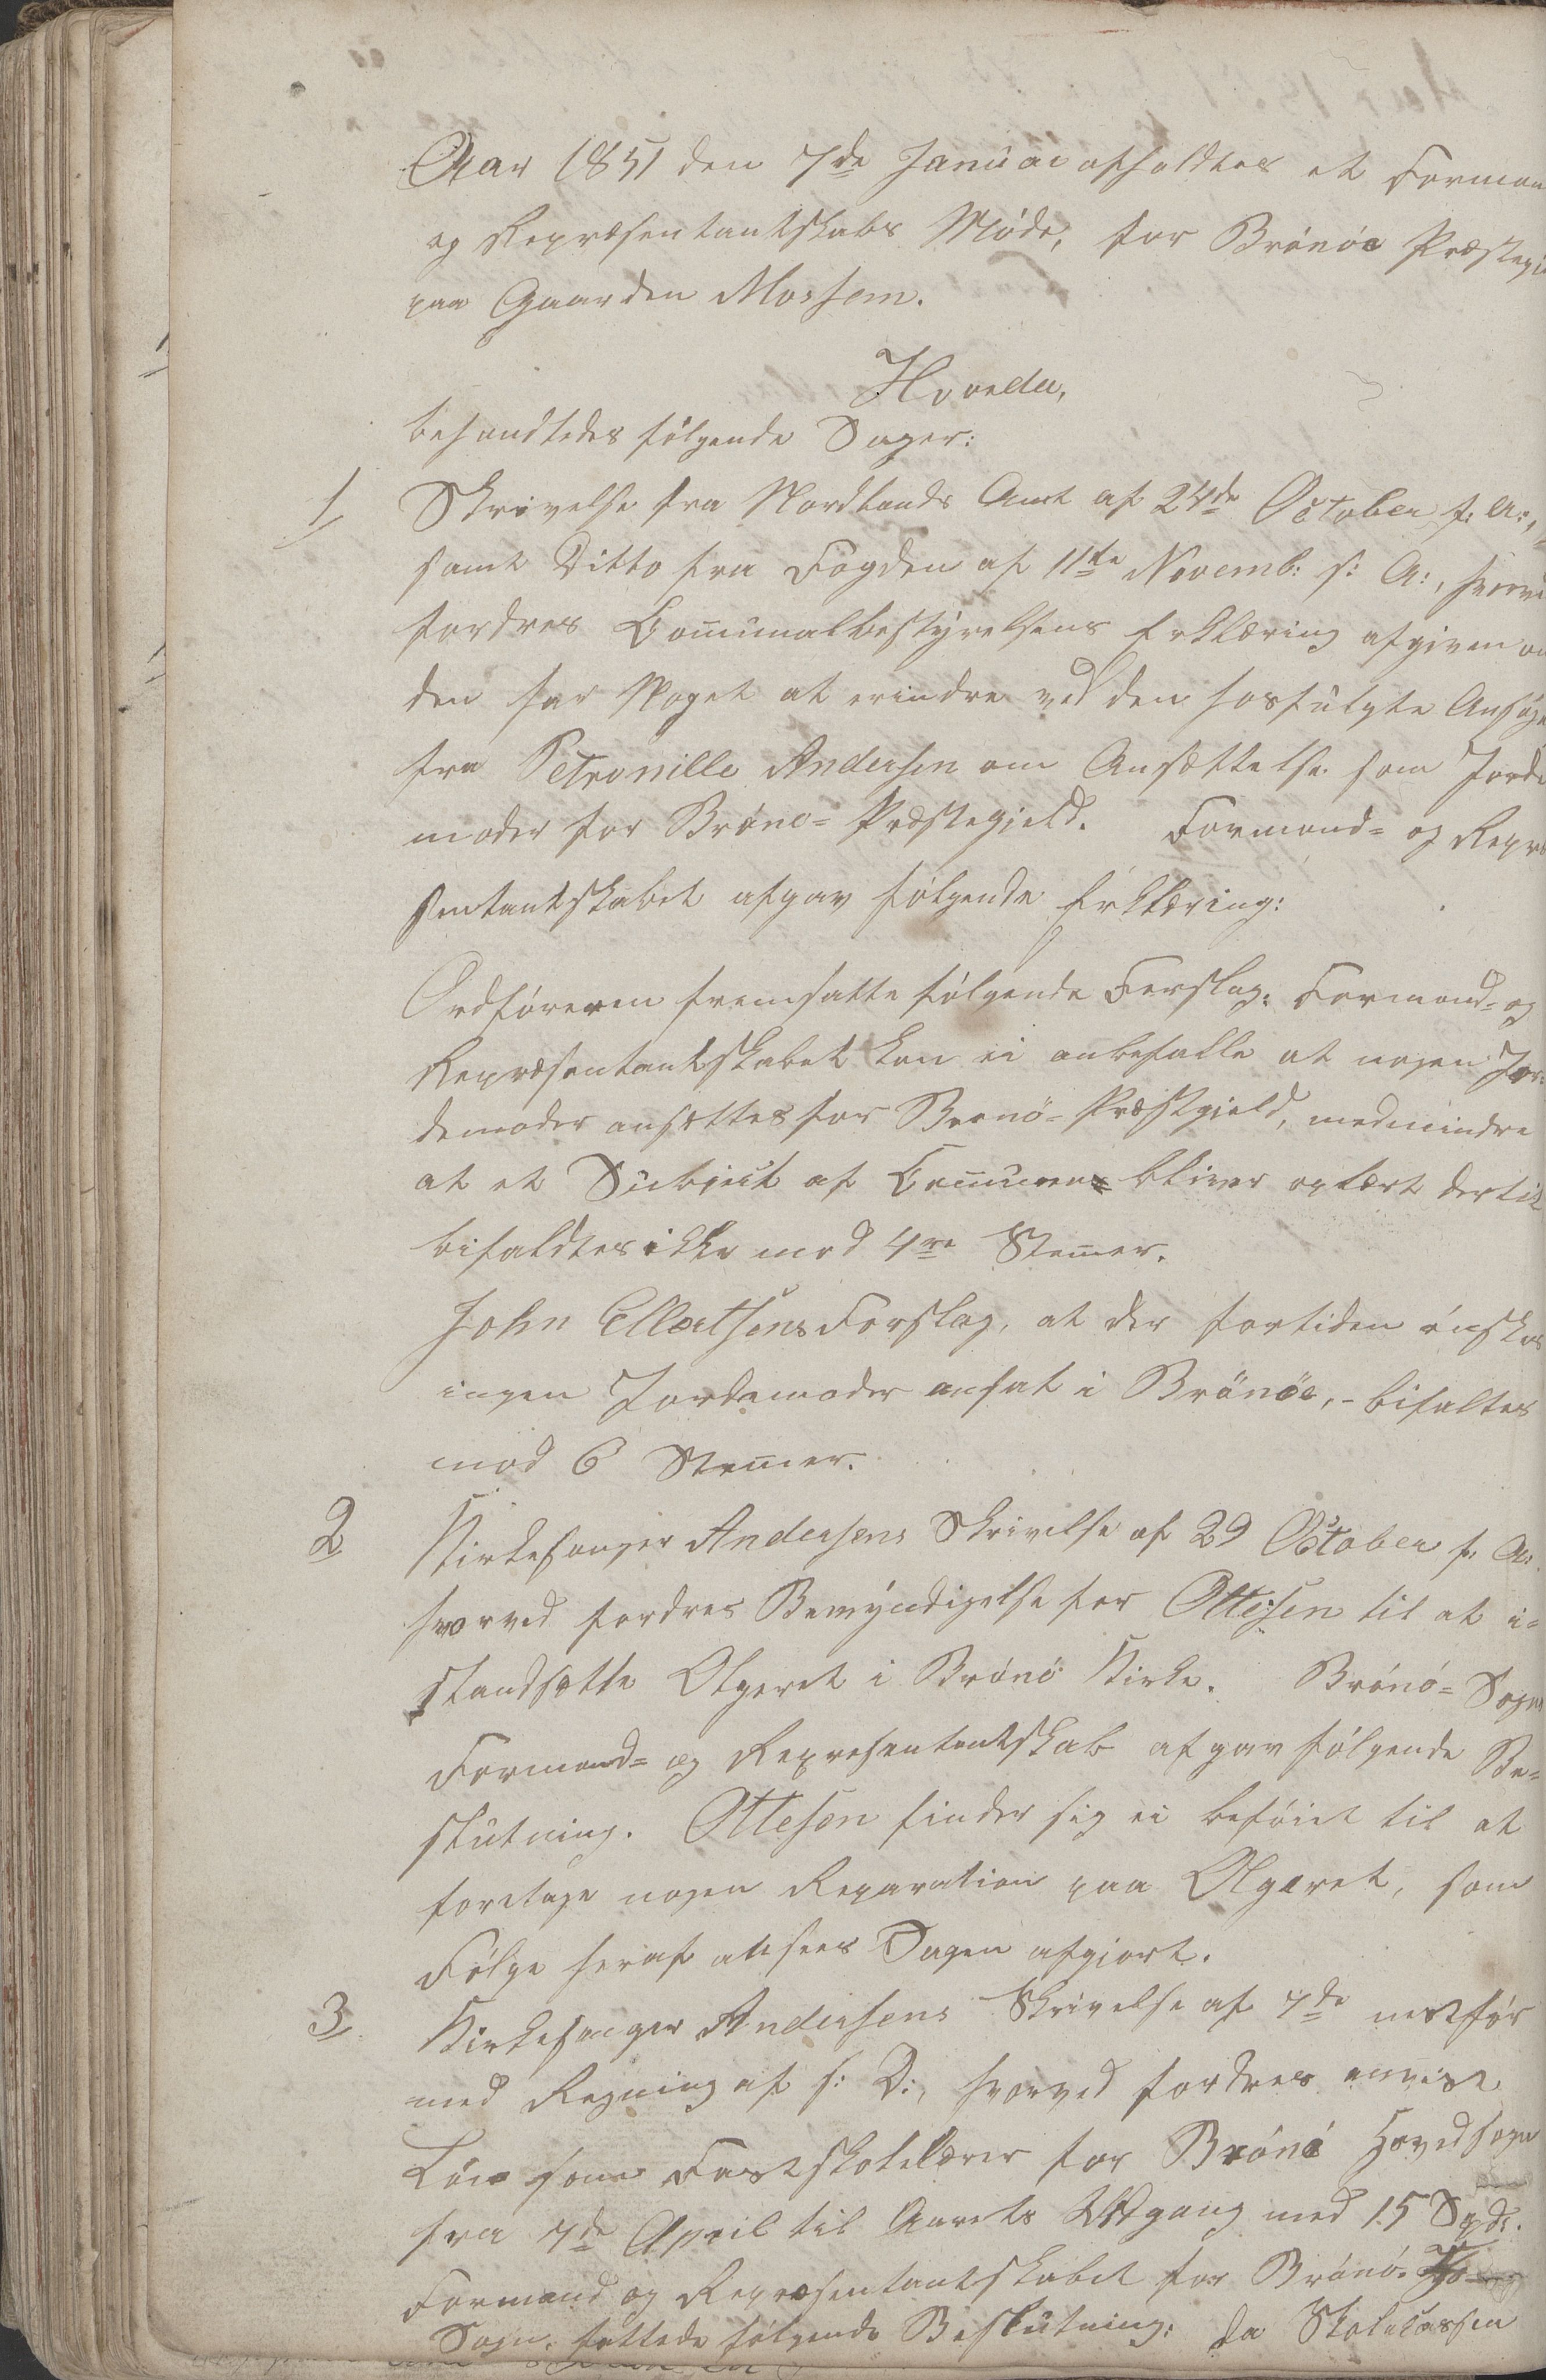 Aar 1851 den 7de Januar afholdtes et Forman
og Repræsentantskabs Møde, for Brönöe Præstegj
paa Gaarden Mosheim.
Hvorda,
behandledes følgende Sager:
1 Skrivelse fra Nordlands Amt af 24de October f: A:,
samt Ditto fra Fogden af 11te Novemb: s: A:, hvorve
fordres Communalbestyrelsens Erklæring afgiven om
den har Noget at erindre ved den hosfulgte Ansøgn
fra Petronille Andersen om Ansættelse som Jorde
moder for Brønø= Præstegjeld. Formand= og Repræ
sentantskabet afgav følgende Erklæring:
Ordføreren fremsatte følgende Forslag: Formand= og
Repræsentantskabet kan ei anbefalle at nogen Jor=
demoder ansættes for Brønö= Præstgjeld, medmindre
at et Subject af Communen bliver oplært dertil
bifaldtes ikke mod 4re Stemer.
John Ellertsens Forslag, at der fortiden ønskes
ingen Jordemoder ansat i Brönöe, - bifaltes
mod 6 Stemer.
2 Kirkesanger Andersens Skrivelse af 29 October f. A:
hvorved fordres Bemyndigelse for Ottesen til at i=
standsætte Olgeret i Brönö Kirke. Brönö= Sogns
Formand= og Repræsentantskab afgav følgende Be=
slutning. Ottesen finder sig ei beføiet til at
foretage nogen Reparation paa Olgeret, som
Følge heraf ansees Sagen afgjort.
3 Kirkesanger Andersens Skrivelse af 7de nestfør
med Regning af s: D:, hvorved fordres anvist
Løn som Fastskolelærer for Brönö Hovedsogn
fra 7de April til Aarets Udgang med 15 Spd.
Formand og Repræsentantskabet for Brönö
Sogn, fattede følgende Beslutning: da Skolekassen